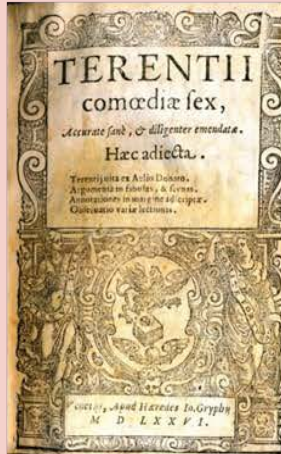 TERENTII
comœdiæ sex,
Accurate sanè, & diligenter emendatæ.
Hæc adiecta.
Terentij uita ex Aelio Donato.
Argumenta in fabulas, & scenas.
Annotationes in margine adscriptæ.
Obseruatio variæ lectionis.
Venetiis, Apud Hæredes Io. Gryphij
M D LXXVI.